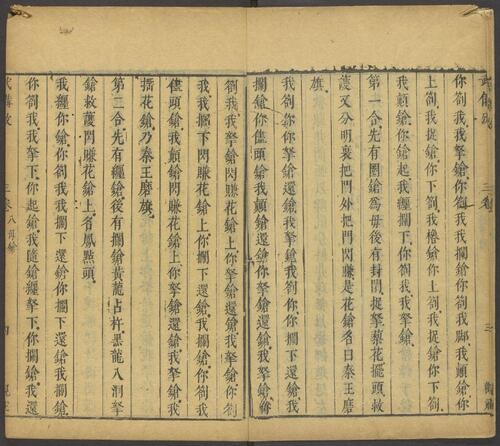 三卷
三
你劄我我拏鎗你劄我我攔鎗你劄我脚我顛鎗你
上劄我捉鎗你下劄我櫓鎗你上劄我捉鎗你下劄
我顛鎗你鎗起我纏攔下你劄我我拏鎗
第一合先有圈鎗爲母後有封閉捉拏棃花擺頭救
護又分明裏把門外把門閃賺是花鎗名曰秦王磨
旗
我劄你你拏鎗還鎗我拏鎗我劄你你攔下還鎗我
攔鎗你儘頭鎗我顛鎗還鎗你拏鎗還鎗我拏鎗你
劄我我拏鎗閃賺花鎗上你拏鎗還鎗我拏鎗你劄
我我攔下閃賺花鎗上你攔下還鎗我攔鎗你劄我
儘頭鎗我顛鎗閃賺花鎗上你拏鎗還鎗我拏鎗我
搖花鎗乃秦王磨旗
第二合先有纏鎗後有攔鎗黃龍占杵黑龍入洞拏
鎗救護閃賺花鎗上名鳳點頭
我纏你鎗你劄我我攔下還鎗你攔下還鎗我攔鎗
你劄我我拏下你起鎗我隨鎗纏拏下你攔鎗我還
三卷 八母鎗
四